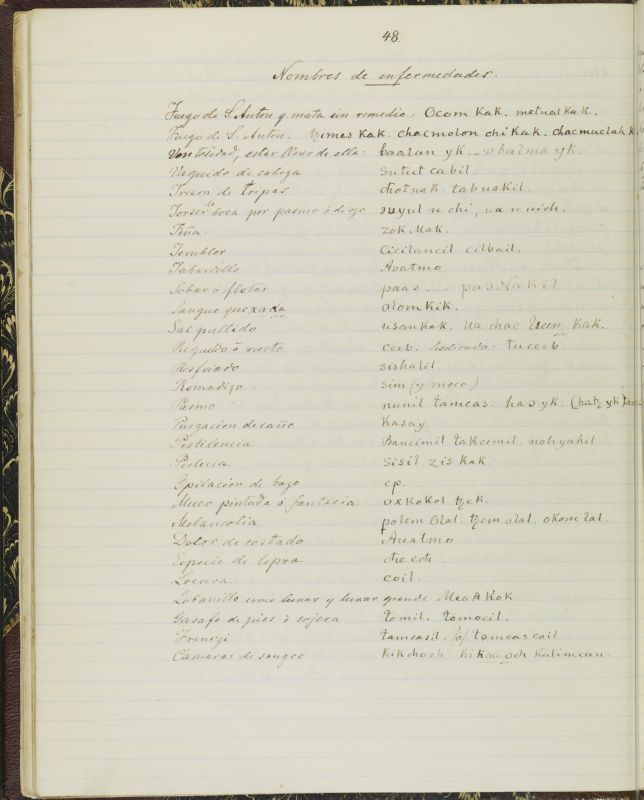 48.
Nombres de enfermedades.
Fuego de S. Anton q. mata sin remedio: Ocom Kak. metnal Kak.
Fuego de S. Anton. Kak. chacmolon chi Kak.
Ventosedad, estar lleno de ella: baalan yk
Vaguido de cabeza sutut cabil.
Torson de tripas chotnak tabnakil.
Torser de boca por pasmo ó de ojo u chi, u uich.
Tiña zok Mak.
Temblor Cicilancil cilbail.
Tabardillo Auatmo
Sobar ó fletar paas ... pas Nakil
Sangre quexada olomkik.
Salpullido usankak. Ua chac Kak.
Regueldo ó ceeb. hediondo: tuceeb.
Resfriado sishalil
Romadizo Sim (y moco)
Pasmo nunil tamcas. has yk.
Purgacion de caño Kasay.
Pestilencia Bancimil takcimil. nohyahil
Perlecia Sisil zis Kak.
Opilacion de bazo ep.
pintada ó fantasia oxkokol tzek.
Melancolia olal. tzem olal. okom lal.
Dolor de costado Auatmo
Especie de lepra che
Locura coil.
Lobanillo como lunar y lunar grande Kok
de pies ó cojera tomil. tomocil.
Frenezi tamcasil. /o/ tamcas coil
Cámaras de sangre Kikchoch Kulimcan.